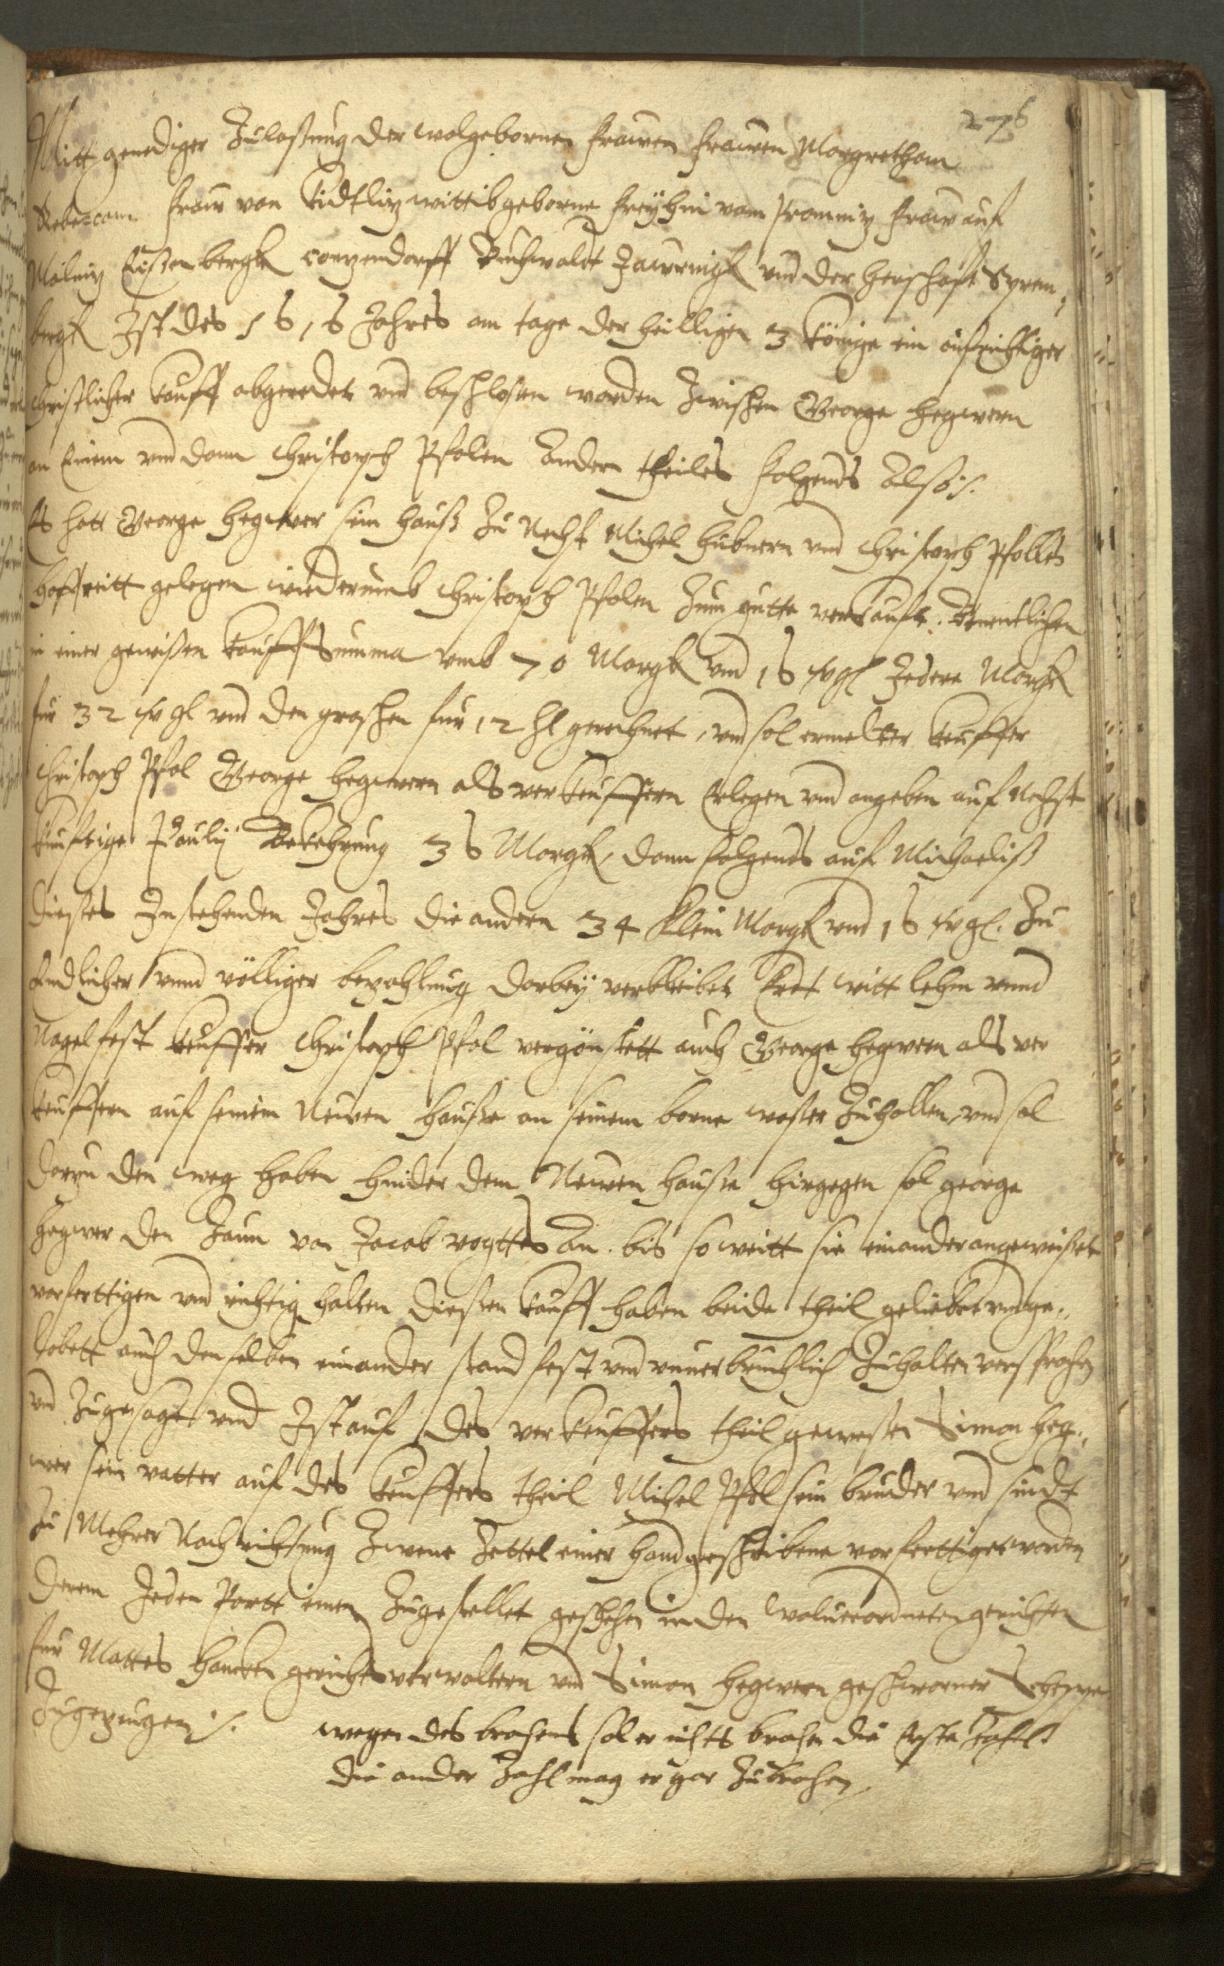 276
Mitt genediger Zulaßung der wolgebornen Frawen Frawen Margretham
Rebeccam Fraw von Kidtlitz wittib geborne Freyhin vom Promnitz Fraw auf
Malmitz Eißenbergk contzendorff Buchwaldt Zawrnigk vnd der herschaft Sprem,
bergk Ist des 1616 Jahres am tage der heilligen 3 Könige ein aufrichtiger
Christlicher kauff abgeredet vnd beschloßen worden Zwischen George hegwern
an Einem vnd dann Christoph Pfolen Andern theiles folgends Alsso:/.
Es hatt George hegwer sein hauß Zu Nechst Michel hubnern vnd Christoph Pfolles
hoffreitt gelegen wiederumb Christoph Pfolen Zum gutte verkauft. Benentlichen
in einer gewißen kauffSumma vmb 70 Margk vnd 16 sgl Jedere Margk
für 32 sgl vnd den groschen fur 12 hl gerechnet, vnd sol ermelter keuffer
Christoph Pfol George hegwern als verkeuffern Erlegen vnd angeben auf Nechst
kunftige Pauly Bekehrung 36 Margk, dann folgents auf Michaeliß
dießes Instehenden Jahres die andern 34 klein Margk vnd 16 sgl. Zu
Endlicher vnnd völliger bezahlung dorbey verbleibet Erdt witt lehm vnnd
Nagelfest keuffer Christoph Pfol vergönstett auch George hegwern als ver
keuffern auf seinem Neuen hauße an seinem borne waßer Zuhollen, vnd sol
dorzu den weg haben hinder dem Newen hauße hirgegen sol george
hegwer den Zaun von Jacob vogttes An. bis so weitt sie einander angeweißet
vorferttigen vnd richtig halten dießen kauff haben beide theil geliebet vnd ge,,
lobett auch denselben einander stand fest vnd vnuerbruchlich Zuhalten versprochen
vnd Zugesagt vnd Ist auf des verkeuffers theil gewesen Simon heg,,
wer sein vatter auf des keuffers theil Michel Pfol sein bruder vnd sindt
Zu Mehrer Nachrichtung Zwene Zettel einer handgeschribene vorferttiget worden
derem Jeden Partt einen Zugestellet geschehen in den wolueordneten gerichten
fur Mattes hancken gerichtsverwaltern vnd Simon hegwern geschworner Scheppe
Zugezugen:/. wegen des brachens sol er nichts brachen die Erste Zahl
die ander Zahl mag er gar Zubrachen,